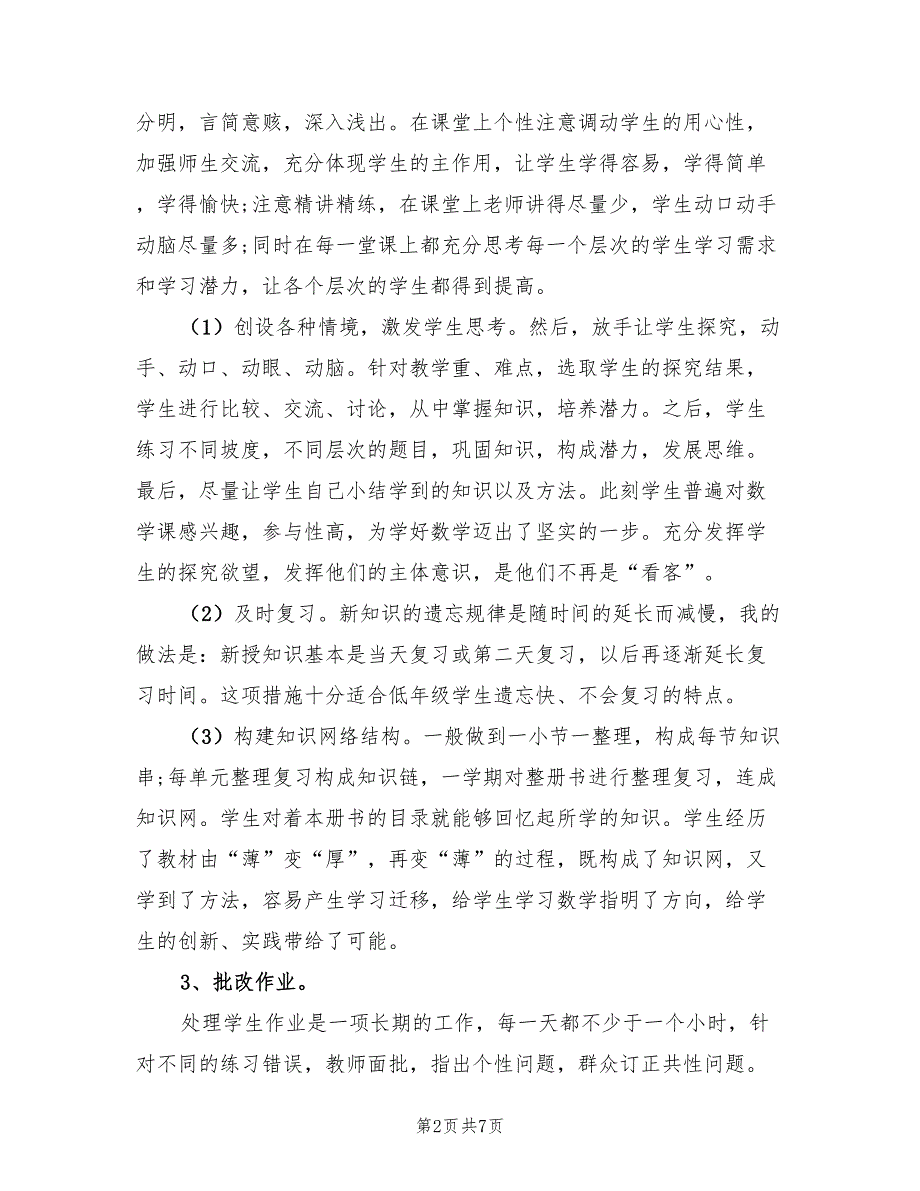 分明，言简意赅，深入浅出。在课堂上个性注意调动学生的用心性，
加强师生交流，充分体现学生的主作用，让学生学得容易，学得简单
，学得愉快;注意精讲精练，在课堂上老师讲得尽量少，学生动口动手
动脑尽量多;同时在每一堂课上都充分思考每一个层次的学生学习需求
和学习潜力，让各个层次的学生都得到提高。
（1）创设各种情境，激发学生思考。然后，放手让学生探究，动
手、动口、动眼、动脑。针对教学重、难点，选取学生的探究结果，
学生进行比较、交流、讨论，从中掌握知识，培养潜力。之后，学生
练习不同坡度，不同层次的题目，巩固知识，构成潜力，发展思维。
最后，尽量让学生自己小结学到的知识以及方法。此刻学生普遍对数
学课感兴趣，参与性高，为学好数学迈出了坚实的一步。充分发挥学
生的探究欲望，发挥他们的主体意识，是他们不再是“看客”。
（2）及时复习。新知识的遗忘规律是随时间的延长而减慢，我的
做法是：新授知识基本是当天复习或第二天复习，以后再逐渐延长复
习时间。这项措施十分适合低年级学生遗忘快、不会复习的特点。
（3）构建知识网络结构。一般做到一小节一整理，构成每节知识
串;每单元整理复习构成知识链，一学期对整册书进行整理复习，连成
知识网。学生对着本册书的目录就能够回忆起所学的知识。学生经历
了教材由“薄”变“厚”，再变“薄”的过程，既构成了知识网，又
学到了方法，容易产生学习迁移，给学生学习数学指明了方向，给学
生的创新、实践带给了可能。
3、批改作业。
处理学生作业是一项长期的工作，每一天都不少于一个小时，针
对不同的练习错误，教师面批，指出个性问题，群众订正共性问题。
第2页 共7页